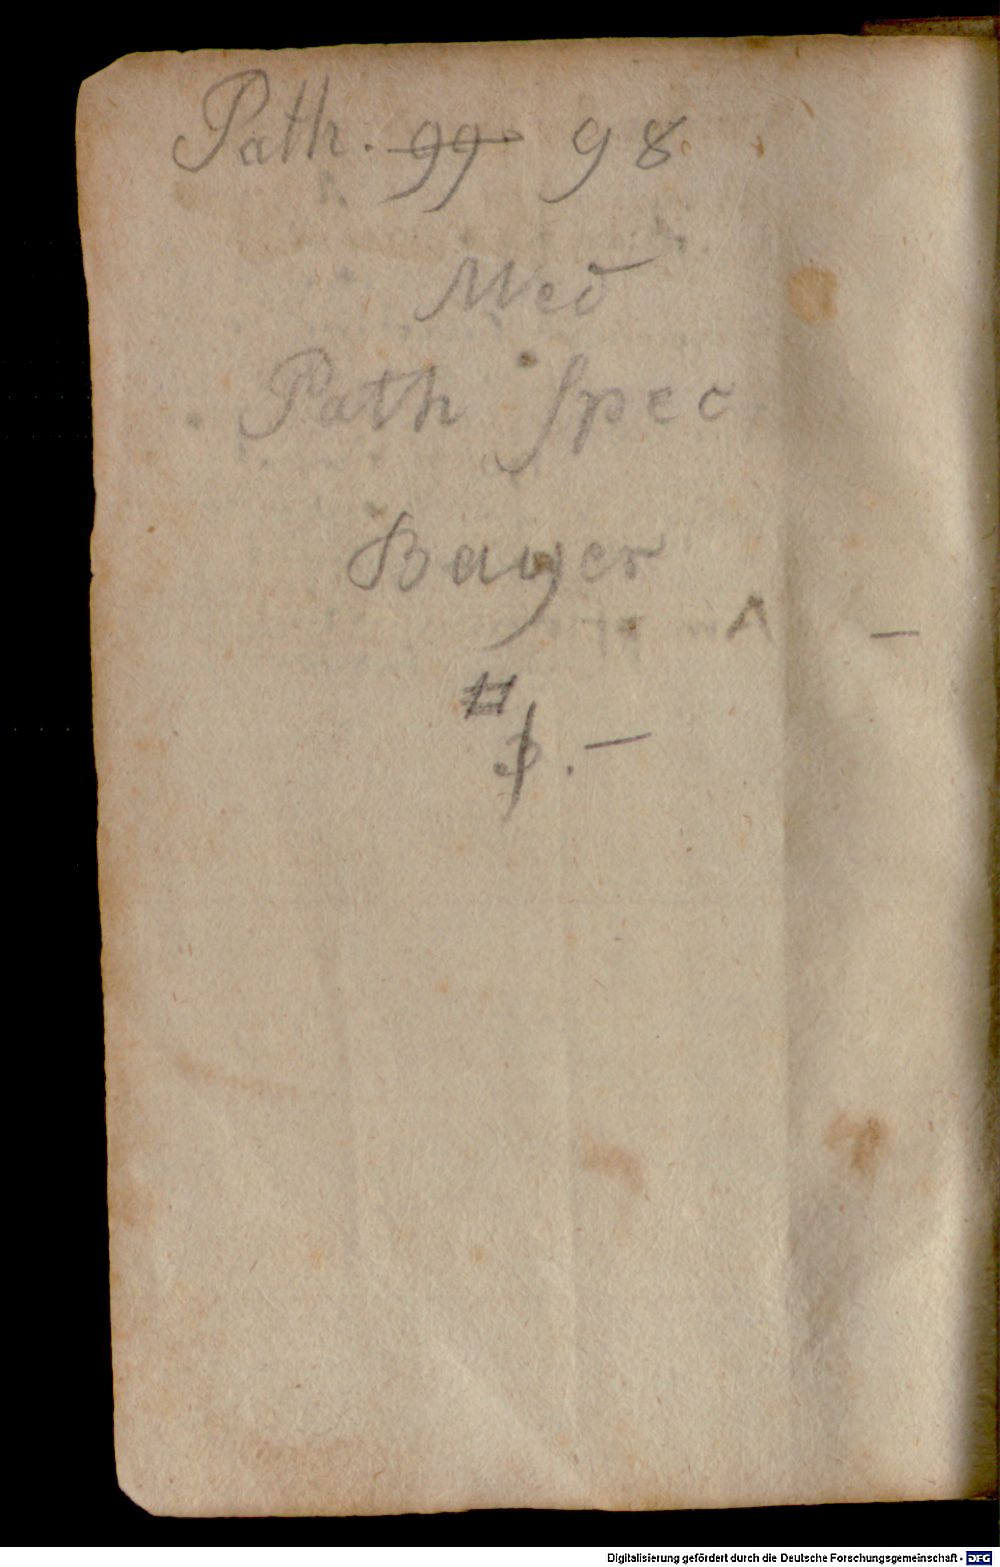 Path. 99 98
Med
Path Spec
Bayer
Digitalisierung gefördert durch die Deutsche Forschungsgemeinschaft - DFG